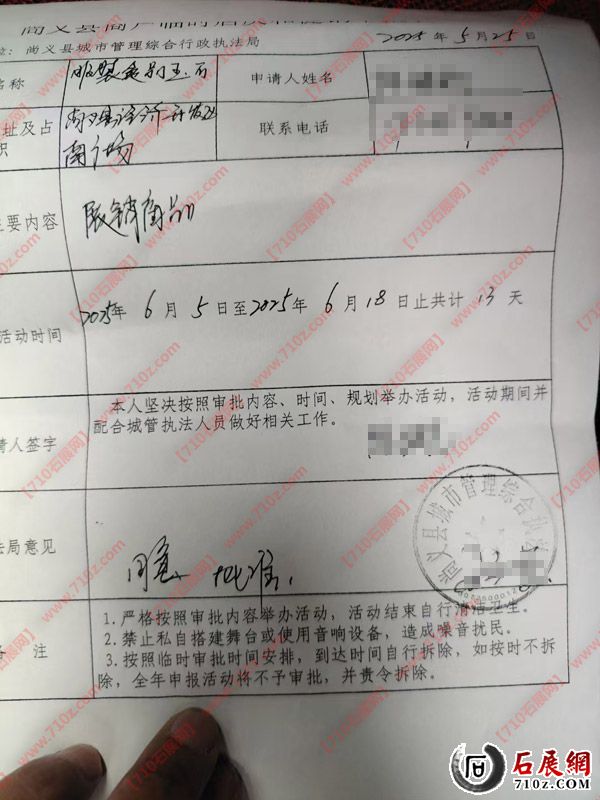 尚义县商户临时
位：尚义县城市管理综合行政执法局
2025年5月25日
名称
玉石
申请人姓名
址及占
尚义县经济开发区
联系电话
积
南广场
主要内容
展销商品
活动时间
2025年6月5日至2025年6月18日止共计13天
本人坚决按照审批内容、时间、规划举办活动，活动期间并
配合城管执法人员做好相关工作。
请人签字
法局意见
同意 批准.
尚义县城市管理综合
备 注
1.严格按照审批内容举办活动，活动结束自行清洁卫生。
2.禁止私自搭建舞台或使用音响设备，造成噪音扰民。
3.按照临时审批时间安排，到达时间自行拆除，如按时不拆
除，全年申报活动将不予审批，并责令拆除。
【710石展网】
www.710z.com
石展網
710z.com